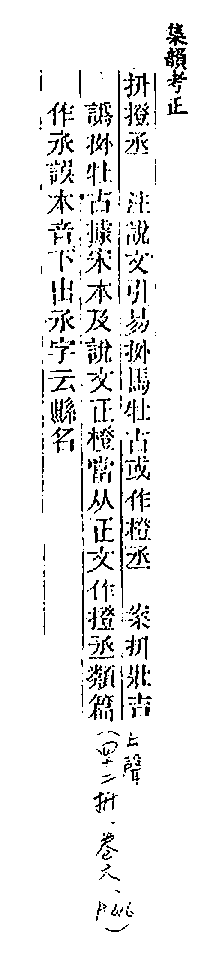 集韻考正
抍撜丞　注說文引易抍馬牡古或作橙丞　案抍牡吉
譌抍牡古據宋本及說文正橙當从正文作撜丞類篇
作氶誤本音下出氶字云縣名
上聲
(四十二抍、卷六、P46)